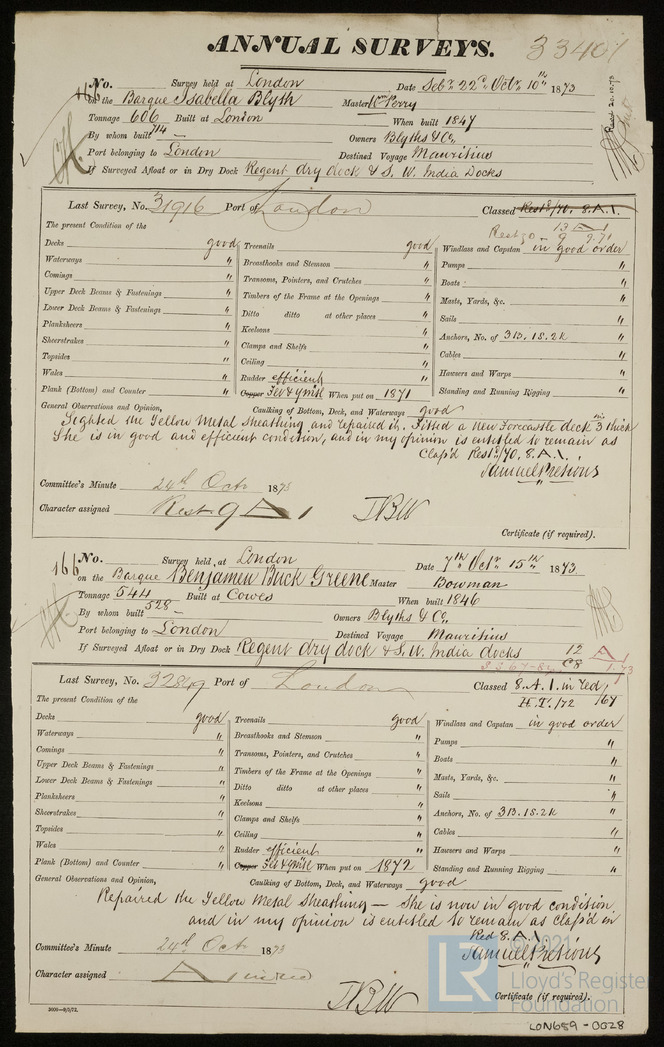 ANNUAL SURVEYS. 33401
No. Survey held at London Date Sepr. 22d, Octr. 10th 1873
166 on the Barque Isabella Blyth Master Wm Perry
Tonnage 606 Built at London When built 1847
By whom built 714 — Owners Blyths & Co.
Port belonging to London Destined Voyage Mauritius
If Surveyed Afloat or in Dry Dock Regent dry dock & S. W. India Docks
Recd 20.10.73
Last Survey, No. 31916 Port of London Classed Restd/70, 8. A. 1.
The present Condition of the
Decks good
Waterways "
Comings "
Upper Deck Beams & Fastenings "
Lower Deck Beams & Fastenings "
Planksheers "
Sheerstrakes "
Topsides "
Wales "
Plank (Bottom) and Counter "
Treenails good
Breasthooks and Stemson "
Transoms, Pointers, and Crutches "
Timbers of the Frame at the Openings "
Ditto ditto at other places "
Keelsons "
Clamps and Shelfs "
Ceiling "
Rudder efficient
Copper Felt & YMttl When put on 1871
Windlass and Capstan in good order
Pumps "
Boats "
Masts, Yards, &c. "
Sails "
Anchors, No. of 3B. 1S. 2K "
Cables "
Hawsers and Warps "
Standing and Running Rigging "
General Observations and Opinion, Caulking of Bottom, Deck, and Waterways good
Sighted the Yellow Metal Sheathing and repaired it. Fitted a new Forecastle deck 3 in thick
She is in good and efficient condition, and in my opinion is entitled to remain as
Class'd Restd/70, 8. A. 1.
Samuel Pretious
Committee's Minute 24th Octr 1873
Character assigned Rest 9 A 1
Certificate (if required).
166 No. Survey held at London Date 7th, Octr. 15th 1873
on the Barque Benjamin Buck Greene Master Bowman
Tonnage 544 Built at Cowes When built 1846
By whom built 528 — Owners Blyths & Co.
Port belonging to London Destined Voyage Mauritius
If Surveyed Afloat or in Dry Dock Regent dry dock & S. W. India docks
Last Survey, No. 32849 Port of London Classed 8. A. 1. in red,
The present Condition of the
Decks good
Waterways "
Comings "
Upper Deck Beams & Fastenings "
Lower Deck Beams & Fastenings "
Planksheers "
Sheerstrakes "
Topsides "
Wales "
Plank (Bottom) and Counter "
Treenails good
Breasthooks and Stemson "
Transoms, Pointers, and Crutches "
Timbers of the Frame at the Openings "
Ditto ditto at other places "
Keelsons "
Clamps and Shelfs "
Ceiling "
Rudder efficient
Copper Felt & YMttl When put on 1872
H.T./72 167
Windlass and Capstan in good order
Pumps "
Boats "
Masts, Yards, &c. "
Sails "
Anchors, No. of 3B. 1S. 2K "
Cables "
Hawsers and Warps "
Standing and Running Rigging "
General Observations and Opinion, Caulking of Bottom, Deck, and Waterways good
Repaired the Yellow Metal Sheathing — She is now in good condition
and in my opinion is entitled to remain as class'd in
Red 8. A. 1
Samuel Pretious
Committee's Minute 24th Octr 1873
Character assigned A 1 in red
Certificate (if required).
© 2021
LR Lloyd's Register
Foundation
LON689-0028